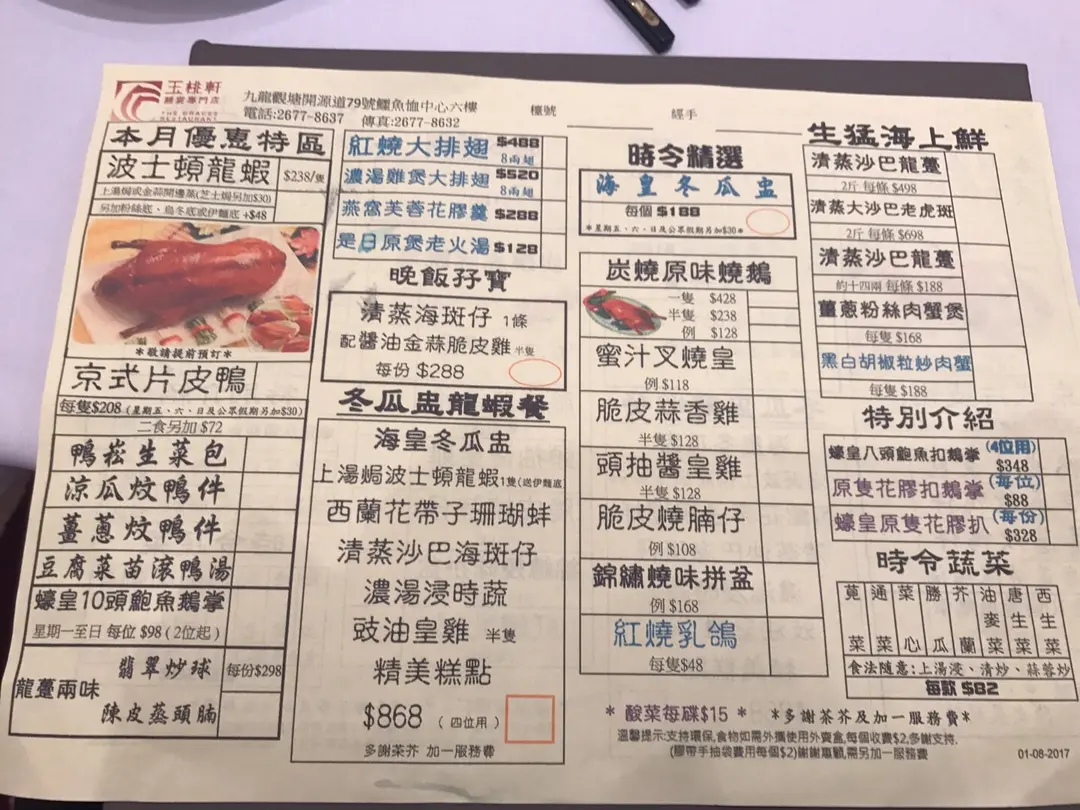 玉桃軒
囍宴專門店
THE GRACES
RESTAURANT
九龍觀塘開源道79號鱷魚恤中心六樓
電話:2677-8637 傳真:2677-8632
檯號
經手
本月優惠特區
波士頓龍蝦 $238/隻
上湯焗或金蒜開邊蒸(芝士焗另加$30)
另加粉絲底、烏冬底或伊麵底 +$48
*敬請提前預訂*
京式片皮鴨
每隻$208 (星期五、六、日及公眾假期另加$30)
二食另加 $72
鴨崧生菜包
涼瓜炆鴨件
薑蔥炆鴨件
豆腐菜苗滾鴨湯
蠔皇10頭鮑魚鵝掌
星期一至日 每位 $98 (2位起)
龍躉兩味
翡翠炒球
每份$298
陳皮蒸頭腩
紅燒大排翅 $488
8兩翅
濃湯雞煲大排翅 $520
8兩翅
燕窩芙蓉花膠羹 $288
是日原煲老火湯 $128
晚飯孖寶
清蒸海斑仔 1條
配醬油金蒜脆皮雞 半隻
每份 $288
冬瓜盅龍蝦餐
海皇冬瓜盅
上湯焗波士頓龍蝦1隻(送伊麵底
西蘭花帶子珊瑚蚌
清蒸沙巴海斑仔
濃湯浸時蔬
豉油皇雞 半隻
精美糕點
$868 (四位用)
多謝茶芥 加一服務費
時令精選
海皇冬瓜盅
每個 $188
*星期五、六、日及公眾假期加$30*
炭燒原味燒鵝
一隻 $428
半隻 $238
例 $128
蜜汁叉燒皇
例 $118
脆皮蒜香雞
半隻 $128
頭抽醬皇雞
半隻 $128
脆皮燒腩仔
例 $108
錦繡燒味拼盆
例 $168
紅燒乳鴿
每隻$48
生猛海上鮮
清蒸沙巴龍躉
2斤 每條 $498
清蒸大沙巴老虎斑
2斤 每條 $698
清蒸沙巴龍躉
約十四兩 每條 $188
薑蔥粉絲肉蟹煲
每隻 $168
黑白胡椒粒炒肉蟹
每隻 $188
特別介紹
蠔皇八頭鮑魚扣鵝掌 (4位用) $348
原隻花膠扣鵝掌 (每位) $88
蠔皇原隻花膠扒 (每份) $328
時令蔬菜
莧菜 通菜 菜心 勝瓜 芥蘭 油麥菜 唐生菜 西生菜
食法隨意:上湯浸、清炒、蒜蓉炒
每款 $82
* 酸菜每碟$15 * *多謝茶芥及加一服務費*
溫馨提示:支持環保,食物如需外攜使用外賣盒,每個收費$2,多謝支持.
(膠帶手抽袋費用每個$2)謝謝惠顧,需另加一服務費
01-08-2017